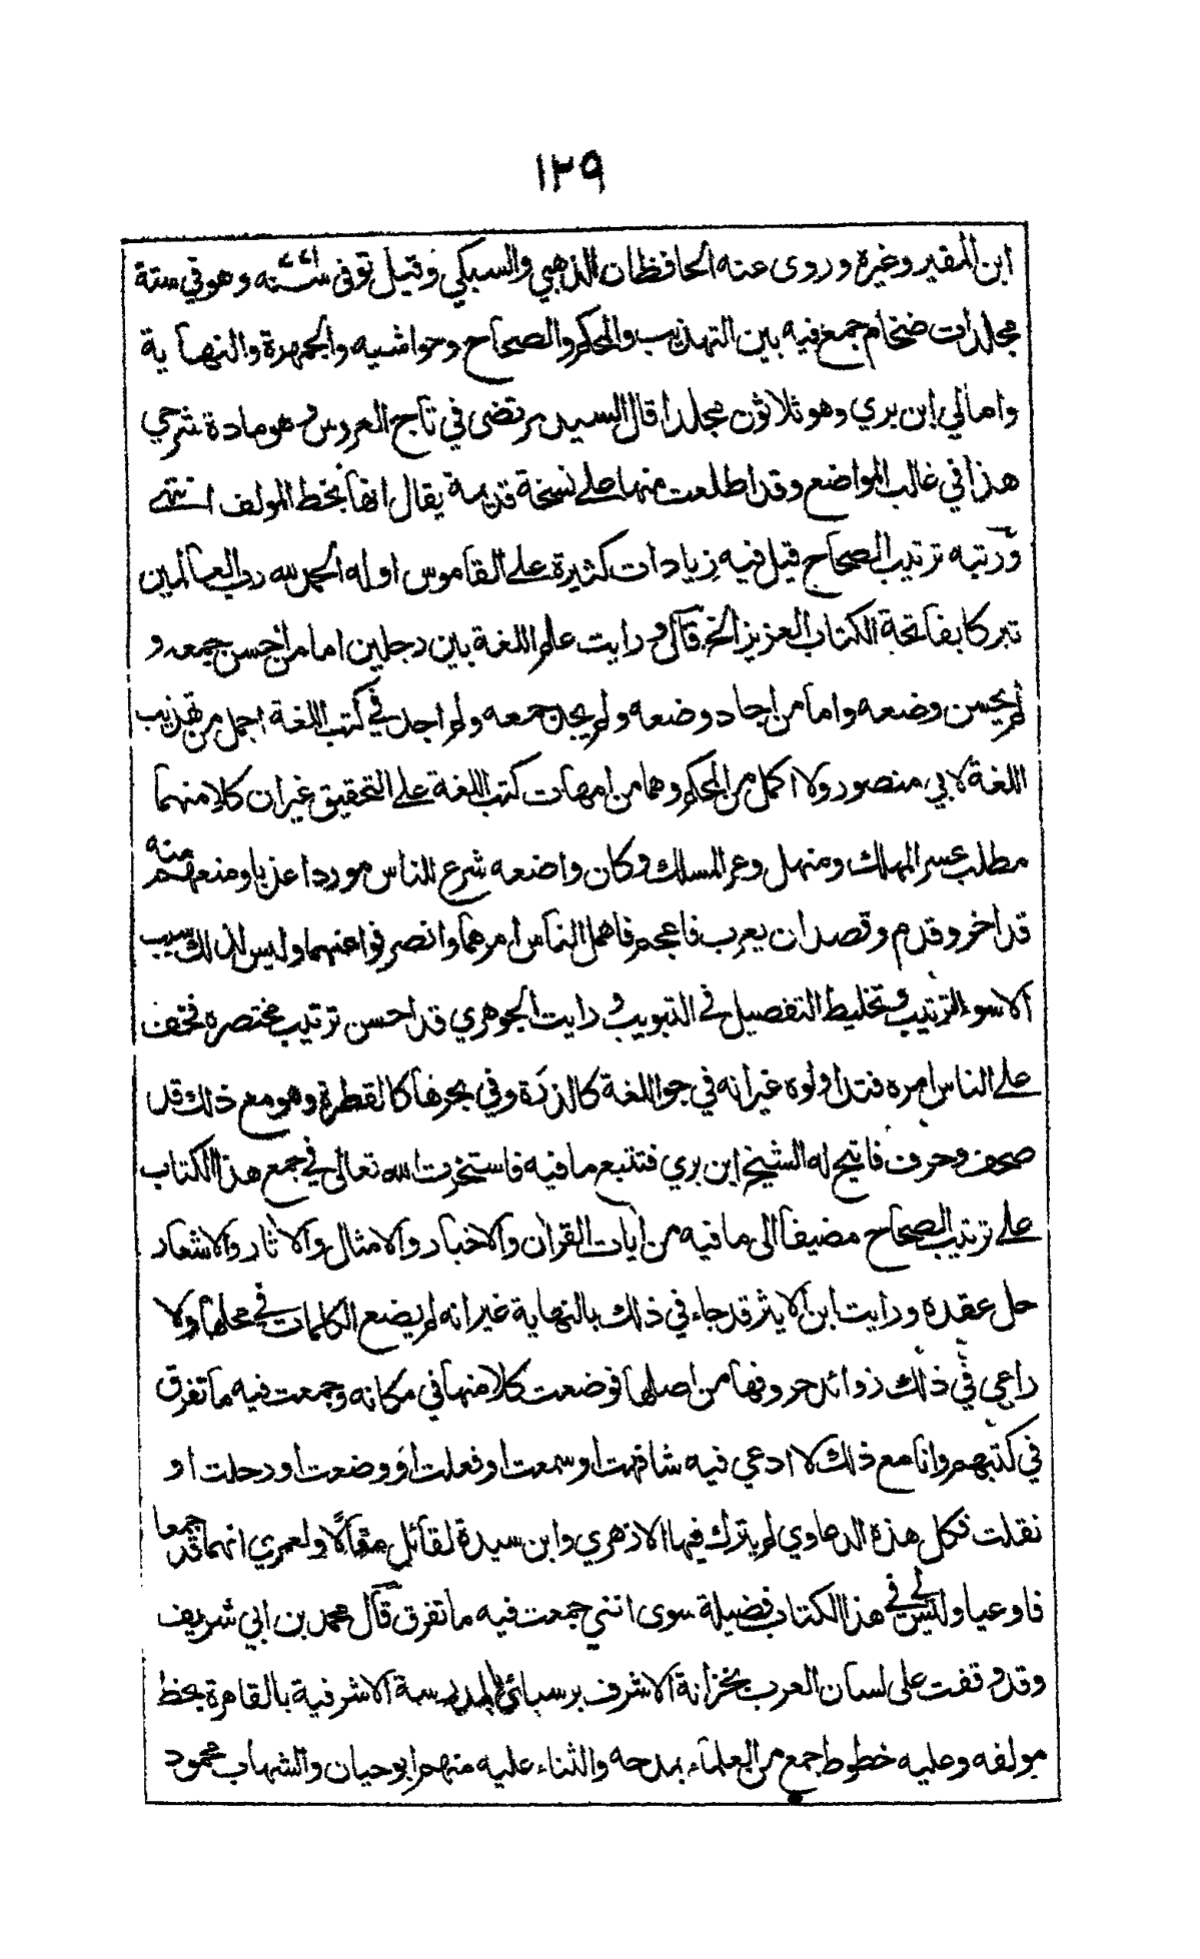 ١٢٩
ابن المقير وغيرة وروى عنه الحافظان الذهبي والسبكي وقيل توفى سنة ٧٧١ وهو في ستة
مجلدات ضخام جمع فيه بين التهذيب والمحكم والصحاح وحواشيه والجمهرة والنهاية
وامالي ابن بري وهو ثلاثون مجلدا قال السيد مرتضى في تاج العروس وهو مادة شرحي
هذا في غالب المواضع وقد اطلعت منها على نسخة قديمة يقال انها بخط المولف انتهى
ورتبه ترتيب الصحاح قيل فيه زيادات كثيرة على القاموس اوله الحمد لله رب العالمين
تبركا بفاتحة الكتاب العزيز الخ قال ورايت علم اللغة بين رجلين اما من احسن جمعه و
لم يحسن وضعه واما من اجاد وضعه ولم يجد جمعه ولم اجد في كتب اللغة اجمل من تهذيب
اللغة لابي منصور ولا اكمل من المحكم وهما من امهات كتب اللغة على التحقيق غير ان كلا منهما
مطلب عسر المهلك ومنهل وعر المسلك وكان واضعه شرع للناس موردا عذبا ومنعهم منه
قد اخر وقدم وقصد ان يعرب فاعجم فاهمل الناس امرهما وانصرفوا عنهما وليس لذلك سبب
الا سوء الترتيب وتخليط التفصيل في التبويب و رايت الجوهري قد احسن ترتيب مختصره فخف
على الناس امره فتداولوه غير انه في جو اللغة كالذرة وفي بحرها كالقطرة وهو مع ذلك قد
صحف وحرف فاتيح له الشيخ ابن بري فتتبع ما فيه فاستخرت الله تعالى في جمع هذا الكتاب
على ترتيب الصحاح مضيفا الى ما فيه من آيات القرآن والاخبار والامثال والاثار والاشعار
حل عقده ورايت ابن الاثير قد جاء في ذلك بالنهاية غير انه لم يضع الكلمات في محلها ولا
راعي في ذلك زوائد حروفها من اصلها فوضعت كلا منها في مكانه وجمعت فيه ما تفرق
في كتبهم وانا مع ذلك لا ادعي فيه شافهت او سمعت او فعلت او وضعت او رحلت او
نقلت فكل هذه الدعاوي لم يترك فيها الازهري وابن سيدة لقائل مقالا ولعمري انهما قد جمعا
فاوعيا وليس لي في هذا الكتاب فضيلة سوى انني جمعت فيه ما تفرق قال محمد بن ابي شريف
وقد وقفت على لسان العرب بخزانة الاشرف برسبائي بالمدرسة الاشرفية بالقاهرة بخط
مولفه وعليه خطوط جمع من العلماء بمدحه والثناء عليه منهم ابو حيان والشهاب محمود